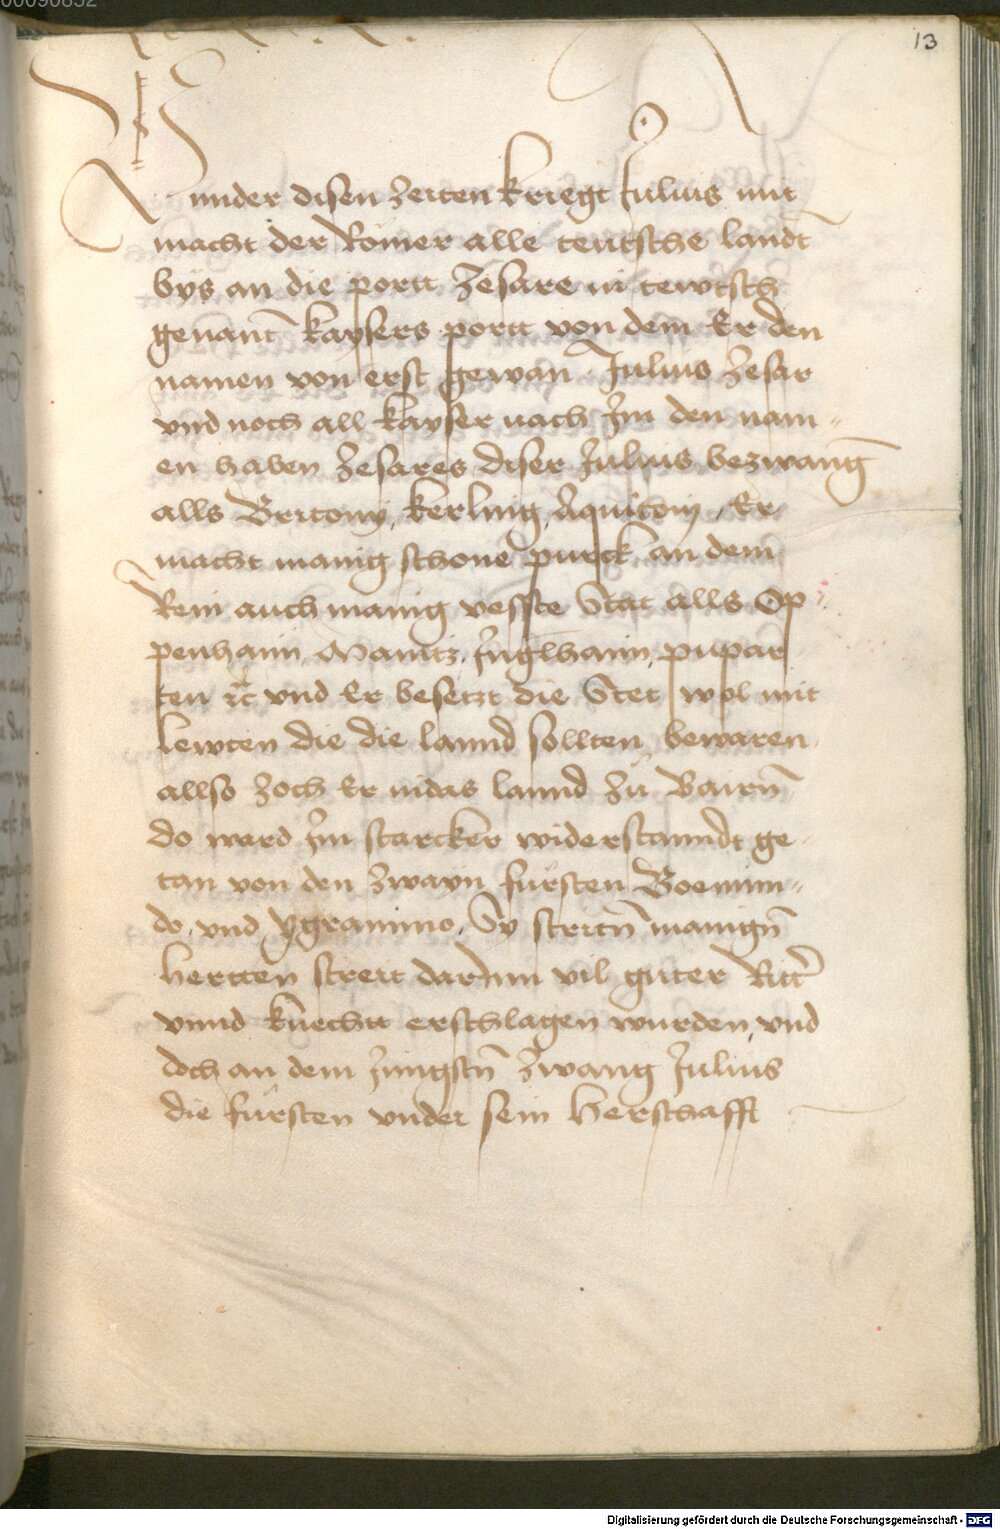 00090852
13
Vnnder disen zeiten kriegt Julius mit
macht der Romer alle teutsche landt
bys an die portt Zesare in tewtsch
genant kaysers portt von dem Er den
namen von erst gewan Julius Zesar
vnd noch all kayser nach Im den nam„
en haben Zesares diser Julius bezwang
alls Britony, Kerling, Aquitony, Er
macht manig schone purck an dem
Rein auch manig vesste Stat alls Op„
penhaim, Maintz, Inglhaim, pupar„
ten zc vnd Er besetzt die Stet wol mit
lewten die die lannd sollten bewaren
allso zoch Er indas lannd zu Bairn̄
do ward Im starcker widerstanndt ge„
tan von den zwayn fürsten Boemun„
do, vnd Ygramino, Sy stritn̄ manign̄
hertten streit darInn vil guter Ritt̄
vnnd knecht erschlagen wurden, vnd
doch an dem Jungstn̄ zwang Julius
die fürsten vnder sein herschafft
Digitalisierung gefördert durch die Deutsche Forschungsgemeinschaft - DFG